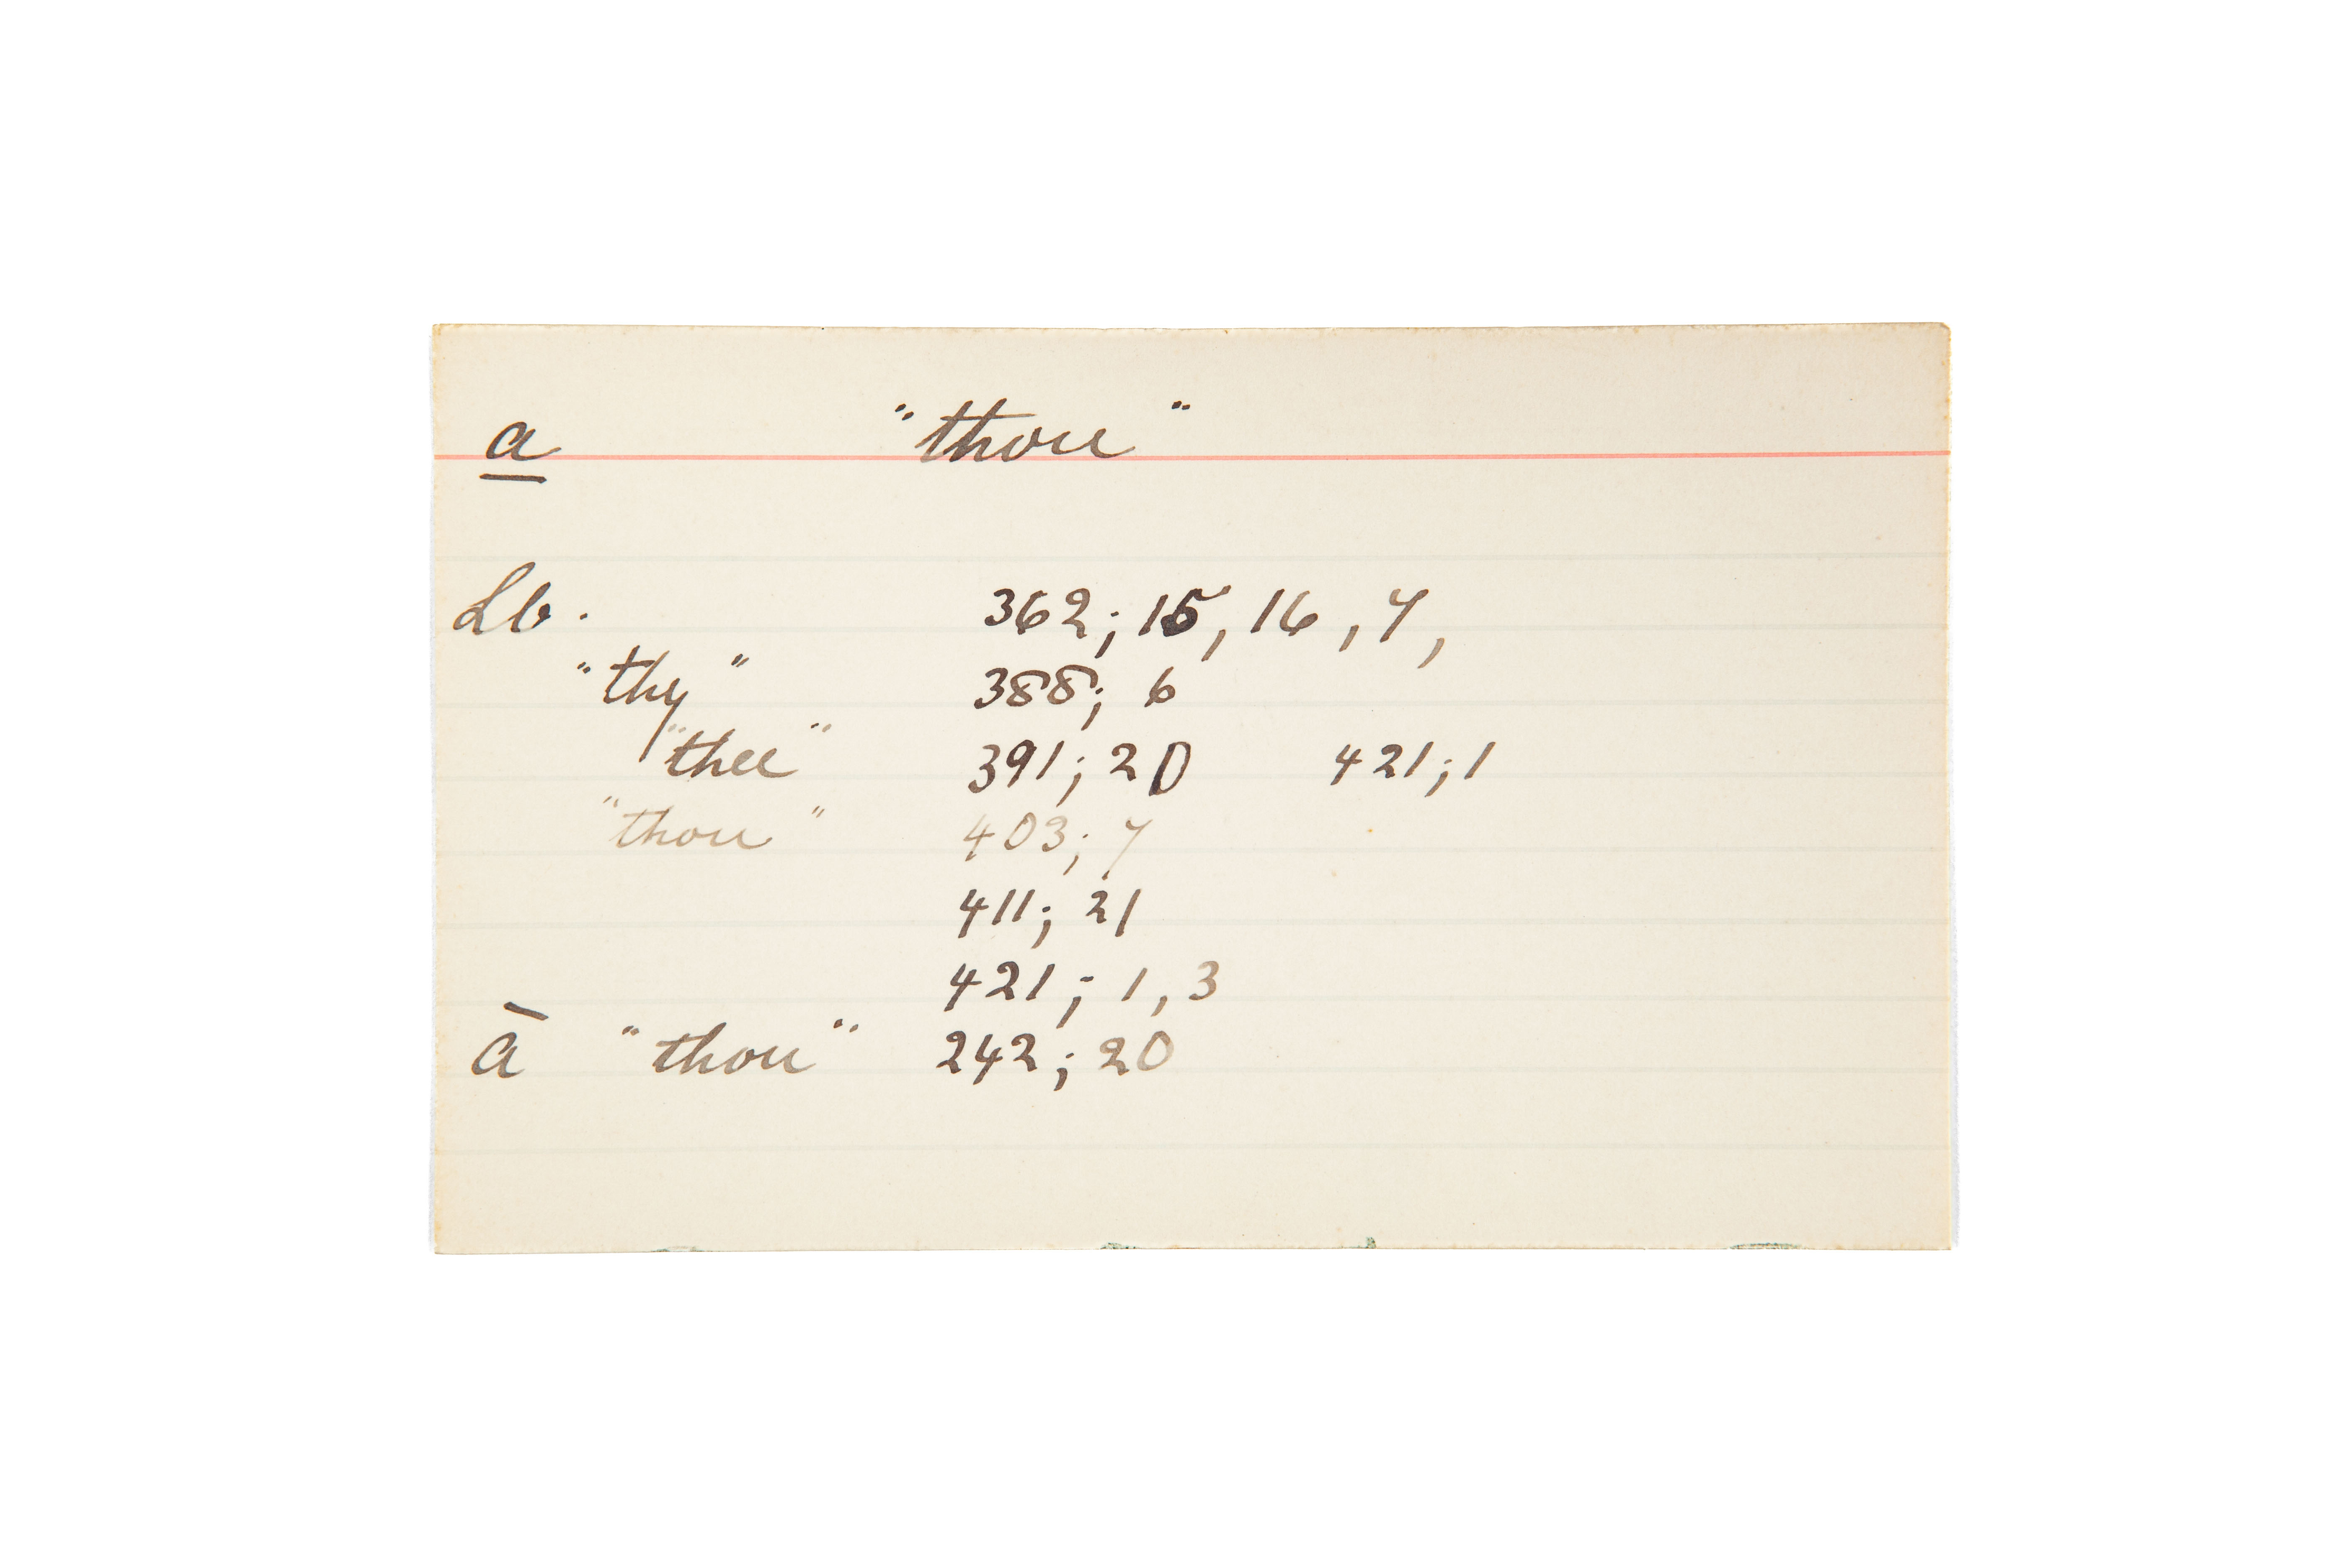 a "thou"
Lb. 362; 15, 16, 7,
"thy" 388; 6
"thee" 391; 20 421; 1
"thou" 403; 7
411; 21
421; 1, 3
ā "thou" 242; 20